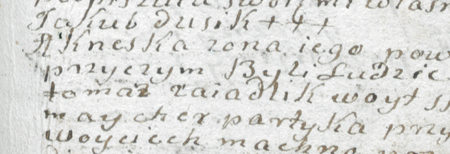 swoimi własn
Jakub dusik +++
Akneska zona iego pow
przyczym Byli Ludzie
tomaz zaiadlik woyt ss
maycher partyka przy
woyciech machna